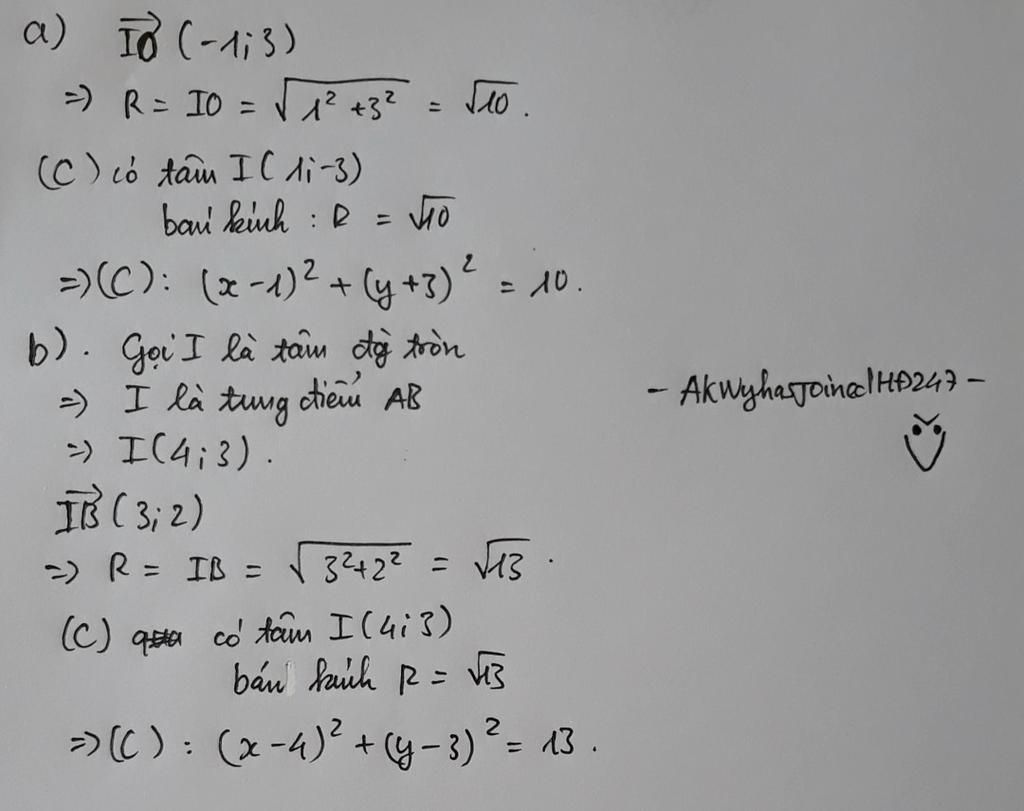 a) \overrightarrow{IO} (-1; 3)
=> R = IO = √(1² + 3²) = √10 .
(C) có tâm I( 1; -3)
bán kính : R = √10
=> (C) : (x - 1)² + (y + 3)² = 10 .
b) . Gọi I là tâm đg tròn
=> I là trung điểm AB
- AkWyhasJoinedHĐ247 -
=> I(4; 3) .
\overrightarrow{IB} (3; 2)
=> R = IB = √(3² + 2²) = √13 .
(C) có tâm I(4; 3)
bán kính R = √13
=> (C) : (x - 4)² + (y - 3)² = 13 .